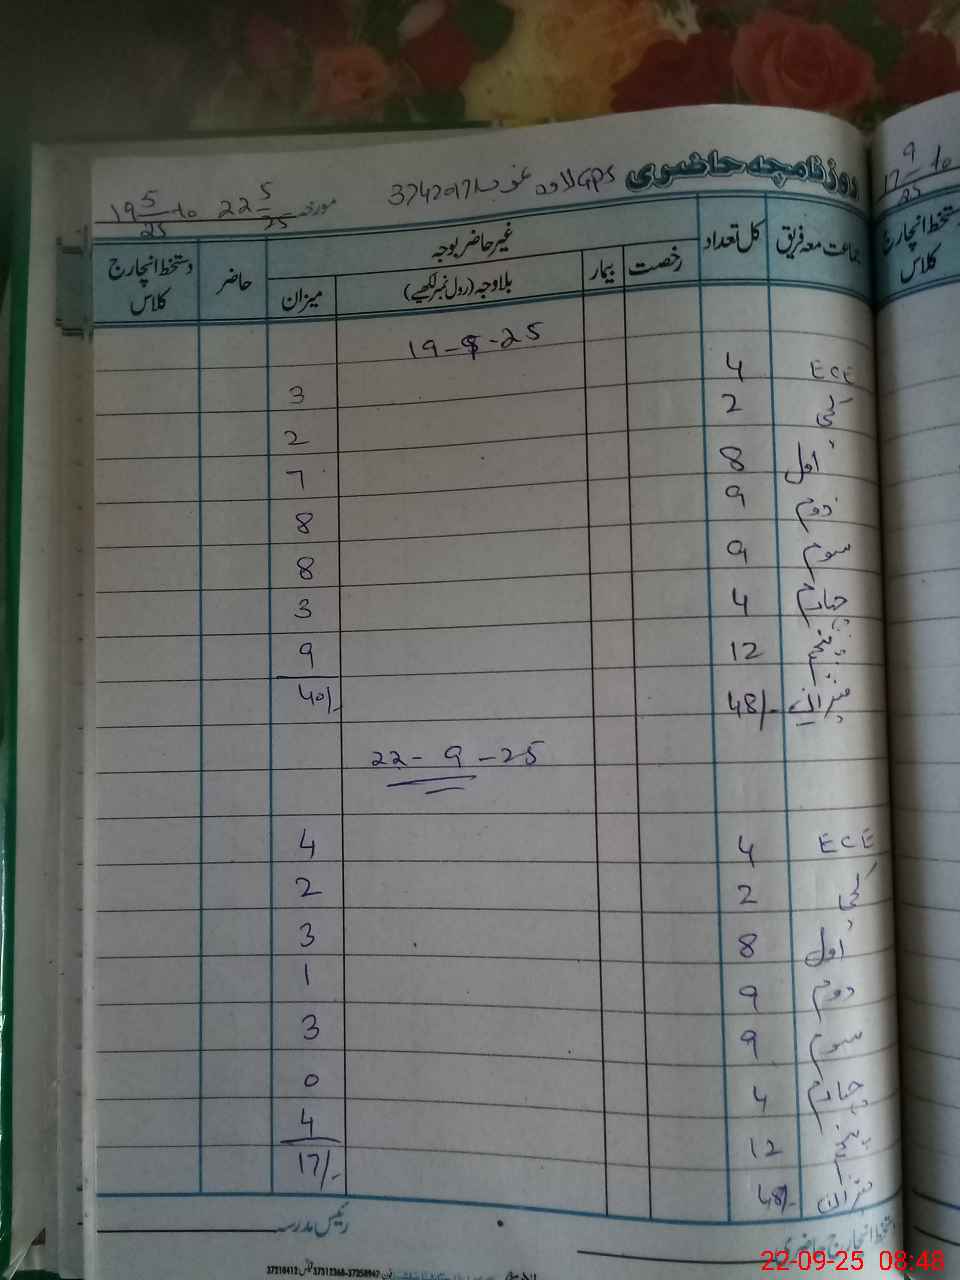 روزنامچہ حاضری GPS لاوہ غرب 37420171 مورخہ 19 5/25 to 22 5/25
جماعت معہ فریق کل تعداد رخصت بیمار غیر حاضر بوجہ حاضر دستخط انچارج کلاس
بلاوجہ (رول نمبر لکھیے) میزان
19-9-25
ECE 4 3
کچی 2 2
اول 8 7
دوم 9 8
سوم 9 8
چہارم 4 3
پنجم 12 9
میزان 48/- 40/-
22-9-25
ECE 4 4
کچی 2 2
اول 8 3
دوم 9 1
سوم 9 3
چہارم 4 0
پنجم 12 4
میزان 48/- 17/-
دستخط انچارج حاضری رئیس مدرسہ
37210412 37312368-37358947
17 9/25 to
دستخط انچارج
کلاس
22-09-25 08:48